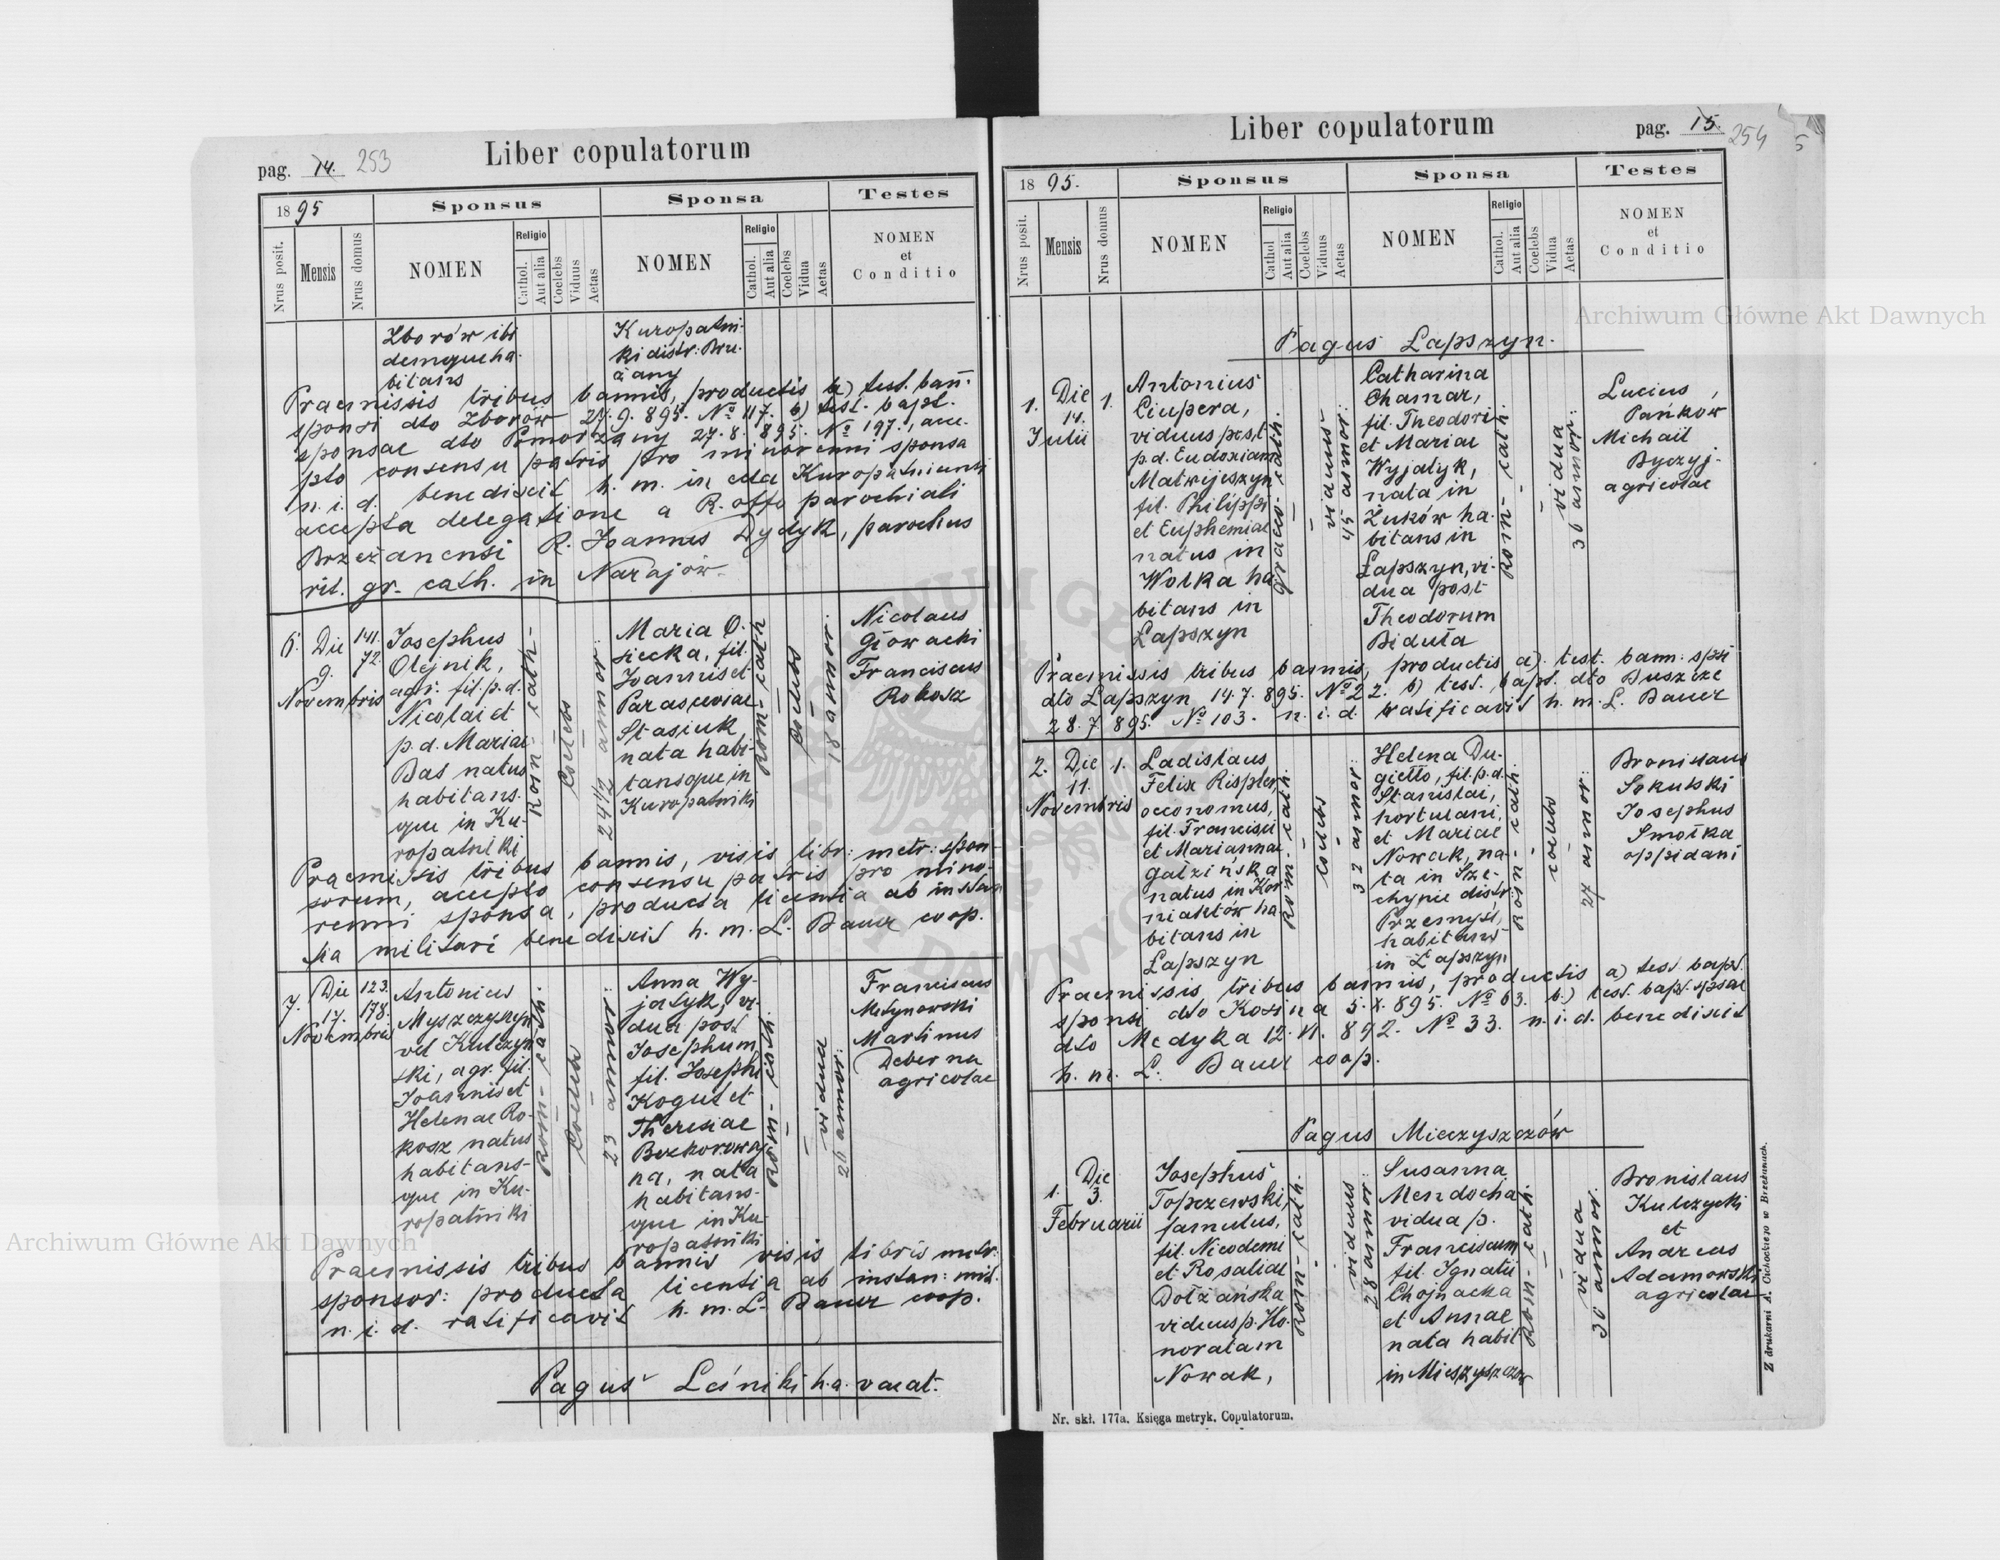 Liber copulatorum
pag. 14. 253
1895
Sponsus
Sponsa
Testes
Nrus posit.
Mensis
Nrus domus
NOMEN
Religio
Cathol.
Aut alia
Coelebs
Viduus
Aetas
NOMEN
Religio
Cathol.
Aut alia
Coelebs
Vidua
Aetas
NOMEN
et
Conditio
Zborów ibi
demqueha-
bitans
Kuropatni-
ki distr: Brze-
żany
Praemissis tribus bannis, productis a) test. bann:
sponsi dto Zborów 27.9.895. No 117. b) test. bapt.
sponsae dto Pomorzany 27.8.895. No 197., acce-
pto consensu patris pro minorenni sponsa
n. i. d. benedixit h. m. in ecla Kuropatniensi
accepta delegatione a R. offo parochiali
Brzeżanensi R. Joannes Dydyk, parochus
rit. gr. cath. in Narajów.
6.
Die
9.
Novembris
141.
72.
Josephus
Olejnik,
agr. fil. p.d.
Nicolai et
p.d. Mariae
Bas natus
habitans-
que in Ku-
ropatniki
Rom-cath-
Coelebs
24 1/2 annor:
Maria O-
siecka, fil.
Joannis et
Parasceviae
Stasiuk
nata habi-
tansque in
Kuropatniki
Rom-cath
coelebs
18 annor:
Nicolaus
Głowacki
Franciscus
Rokosz
Praemissis tribus bannis, visis libr: metr: spon-
sorum, accepto consensu patris pro mino-
renni sponsa, producta licentia ab instan
tia militari benedixit h. m. L. Bauer coop.
7.
Die
17.
Novembris
123.
178.
Antonius
Myszczyszyn
vel Kulczyn
ski, agr. fil.
Joannis et
Helenae Ro-
kosz natus
habitans-
que in Ku-
ropatniki
Rom-cath:
Coelebs
23 annor:
Anna Wy-
jatyk, vi-
dua post
Josephum,
fil. Josephi
Kogut et
Theresiae
Bezkorowaj
na, nata
habitans-
que in Ku-
ropatniki
Rom-cath.
vidua
26 annor:
Franciscus
Młynowski
Martinus
Deberna
agricolae
Praemissis tribus bannis visis libris metr:
sponsor: producta licentia ab instan: mil.
n. i. d. ratificavit h. m. L. Bauer coop.
Pagus Leśniki h.a. vacat.
Liber copulatorum
pag. 15. 254
1895.
Sponsus
Sponsa
Testes
Nrus posit.
Mensis
Nrus domus
NOMEN
Religio
Cathol
Aut alia
Coelebs
Viduus
Aetas
NOMEN
Religio
Cathol.
Aut alia
Coelebs
Vidua
Aetas
NOMEN
et
Conditio
Pagus Łapszyn.
1.
Die
14.
Julii
1.
Antonius
Ciupera,
viduus post
p.d. Eudoxiam
Matwijeszyn
fil. Philippi
et Euphemiae
natus in
Wolka ha
bitans in
Łapszyn
graeco-cath.
viduus
45 annor:
Catharina
Chamar,
fil. Theodori
et Mariae
Wyjatyk,
nata in
Żuków ha-
bitans in
Łapszyn, vi-
dua post
Theodorum
Biduła
Rom-cath.
vidua
36 annor:
Lucius
Pańkow
Michail
Byczyj-
agricolae
Praemissis tribus bannis, productis a) test. bann: spsi
dto Łapszyn 14.7.895. No 22. b) test. bapt. dto Buszcze
28.7.895. No 103. n. i. d. ratificavit h. m. L. Bauer
2.
Die
11.
Novembris
1.
Ladislaus
Felix Rispler
oeconomus,
fil. Francisci
et Mariannae
Gałzińska
natus in Kor
niaktów ha
bitans in
Łapszyn
Rom-cath.
Coelebs
32 annor:
Helena Du-
giełło, fil. p.d.
Stanislai,
hortulani,
et Mariae
Nowak, na-
ta in Sze-
chynie distr.
Przemyśl,
habitans
in Łapszyn
Rom-cath.
coelebs
27 annor:
Bronislaus
Sekulski
Josephus
Smołka
oppidani
Praemissis tribus bannis, productis a) test. bapt.
sponsi dto Kosina 5.X.895. No 63. b.) test. bapt. spsae
dto Medyka 12.VI.892. No 33. n. i. d. benedixit
h. m. L. Bauer coop.
Pagus Mieczyszczów
1.
Die
3.
Februarii
Josephus
Topczewski,
famulus,
fil. Nicodemi
et Rosaliae
Dołżańska
viduus p. Ho-
noratam
Nowak,
Rom-cath.
viduus
28 annor:
Susanna
Mendocha
vidua p.
Franciscum
fil. Ignatii
Chojnacka
et Annae
nata habit
in Mieczyszczow
Rom-cath.
vidua
30 annor.
Bronislaus
Kulczycki
et
Andreas
Adamowski
agricolae
Nr. skł. 177a. Księga metryk. Copulatorum.
Z drukarni A. Cichockiego w Brzeżanach.
Archiwum Główne Akt Dawnych
Archiwum Główne Akt Dawnych